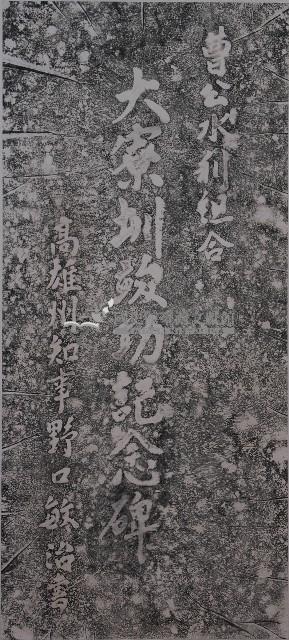 曹公水利組合
大寮圳竣功記念碑
高雄州知事野口敏治書